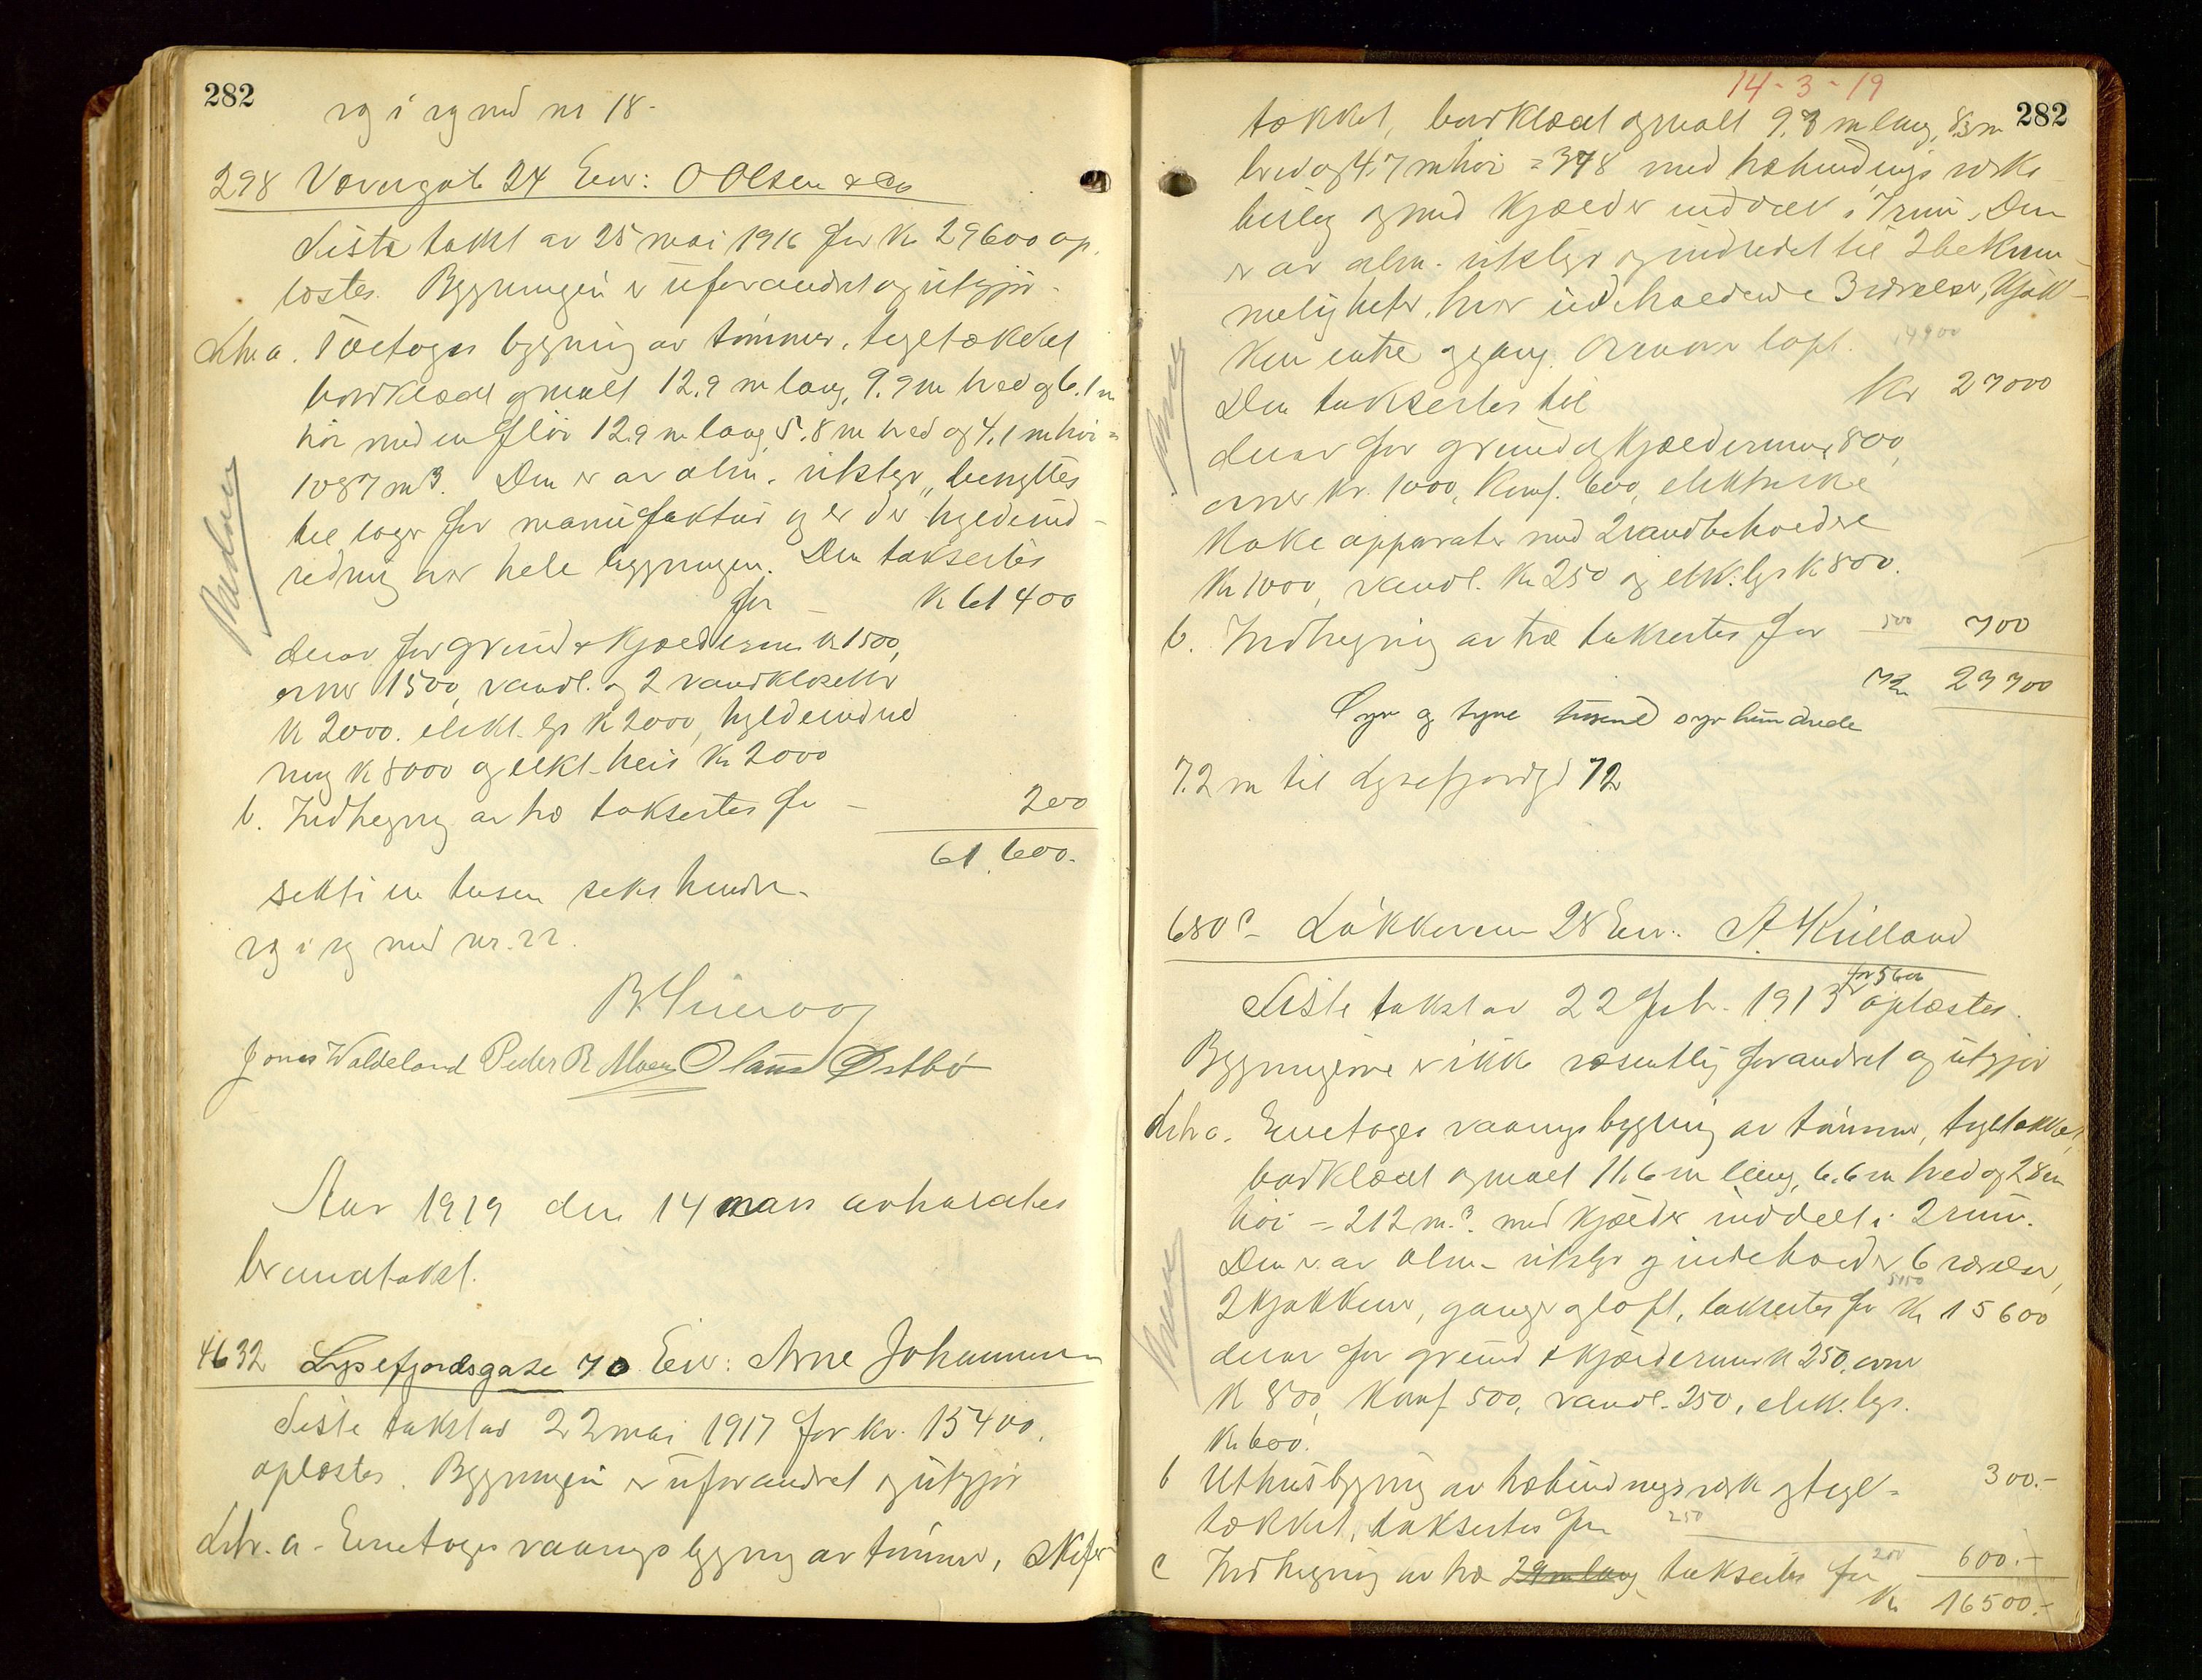 282
rg i rg med nr 18-
298 Vævergate 24 Eier: O Olsen & Co
Siste takst av 25 mai 1916 for kr 29600 op-
læstes. Bygningen er uforandret og utgjør-
Litr a. Toetages bygning av tømmer, tegltækket
bordklædt og malt 12.9 m lang, 9.9 m bred og 6.1 m
høi med en fløi 12.9 m lang 5.8 m bred og 4.1 m høi =
1087 m3. Den er av alm. utstyr, benyttes
til lager for manufaktur og er der hyldeind-
redning over hele bygningen. Den takseres
for - K 61400
derav for grund & kjældermur k 1500,
ovner 1500, vandl. og 2 vandklosetter
k 2000. elekt. lys k 2000, hyldeindred
ning k 8000 og elekt. heis kr 2000
b. Indhegning av træ taksertes for - 200
61.600.
sekti en tusen seks hundre-
rg i rg med nr. 22.
Jonas Waldeland Peder R Moen Olaus Østbø
Aar 1919 den 14 mars avholdtes
brandtakst.
4632 Lysefjordsgate 70 Eier: Arne Johannesen
Siste takst av 22 mai 1917 for kr. 15400.
oplæstes. Bygningen er uforandret og utgjør
Litr. a - Enetages vaaningsbygning av tømmer, skifer-
14-3-19
282
tækket, bordklædt og malt 9.7 m lang, 8.3 m
bred og 4.7 m høi = 378 med utbindings
og med kjælder inddelt i 7 rum. Den
er av alm. utstyr og indredet til 2 bekvem-
meligheter, hver indeholdende 3 værelser, kjøk-
ken entre og gang. Ovenover loft. 14900
Den taksertes til Kr 27000
derav for grund og kjældermur 800,
ovner kr. 1000, komf. 600, elektriske
kokeapparater med 2 vandbeholdere
kr 1000, vandl. kr 250 og elek. lys k 800.
b. Indhegning av træ taksertes for 500 700
Kr 27700
Syv og tyve tusend syv hundrede
7.2 m til Lysefjordgt 72
680c - Løkkeveien 28 Eier: A. Kielland
Siste takst av 22 feb. 1913 for 5600 oplæstes.
Bygningerne er ikke væsentlig forandret og utgjør
Litr a. Enetages vaaningsbygning av tømmer, tegltækket,
bordklædt og malt 11.6 m lang, 6.6 m bred og 2.8 m
høi = 212 m.3. med kjælder inddelt i 2 rum.
Den er av alm. utstyr og indeholder 6 værelser,
2 kjøkkener, ganger og loft, taksertes for 5150 Kr 15600
derav for grund & kjældermur k 250. ovner
k 800, komf 500, vandl. 250, elek. lys.
kr 600.
b Uthusbygning av utbindingsverk og tegl- 300.-
tækket, taksertes for 250
c Indhegning av træ 29 m lang taksertes for 200 600.-
Kr 16500.-